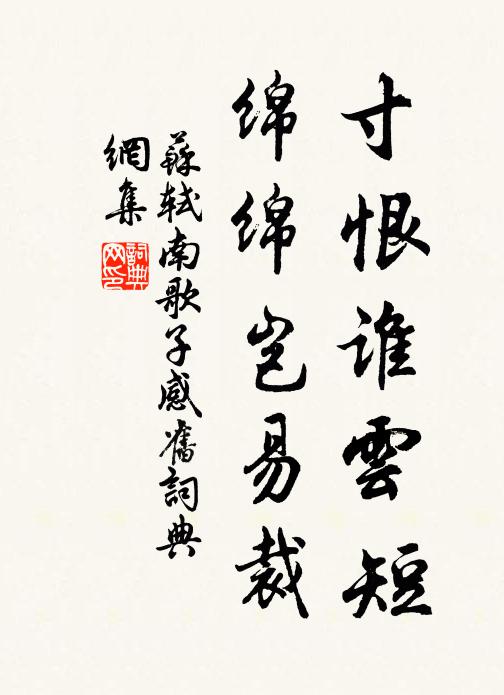 寸恨谁雲短
绵绵岂易裁
蘇軾南歌子感舊詞典
網集
詞典网印